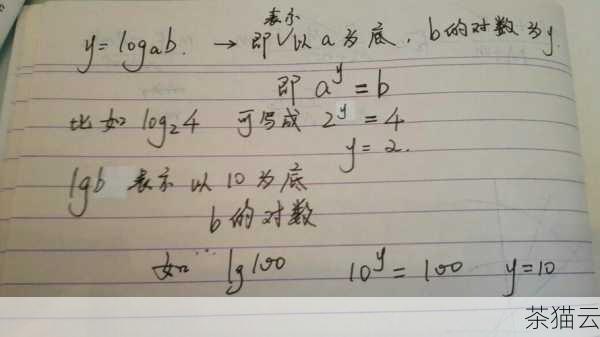 y=logₐb. → 即表示以a为底,b的对数为y.
即 aʸ=b
比如 log₂4 可写成 2ʸ=4
y=2.
lgb 表示以10为底
b的对数
如… lg100 10ʸ=100 y=10
茶猫云